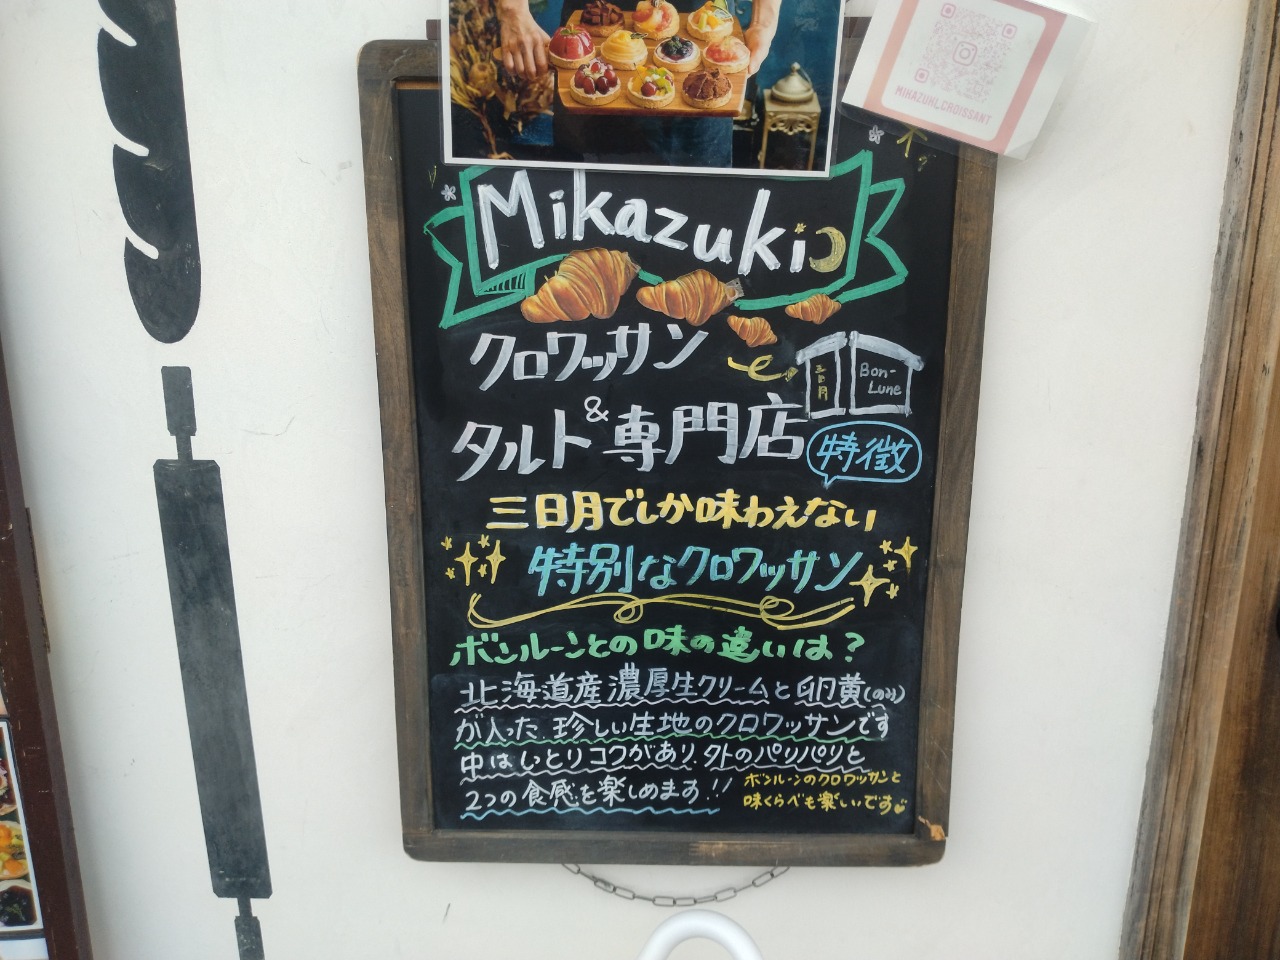 MIKAZUKI_CROISSANT
Mikazuki
クロワッサン
&
タルト専門店
三日月
Bon-
Lune
特徴
三日月でしか味わえない
特別なクロワッサン
ボンルーンとの味の違いは?
北海道産濃厚生クリームと卵黄(のみ)
が入った、珍しい生地のクロワッサンです
中はしっとりコクがあり、外のパリパリと
2つの食感を楽しめます!!
ボンルーンのクロワッサンと
味くらべも楽しいです